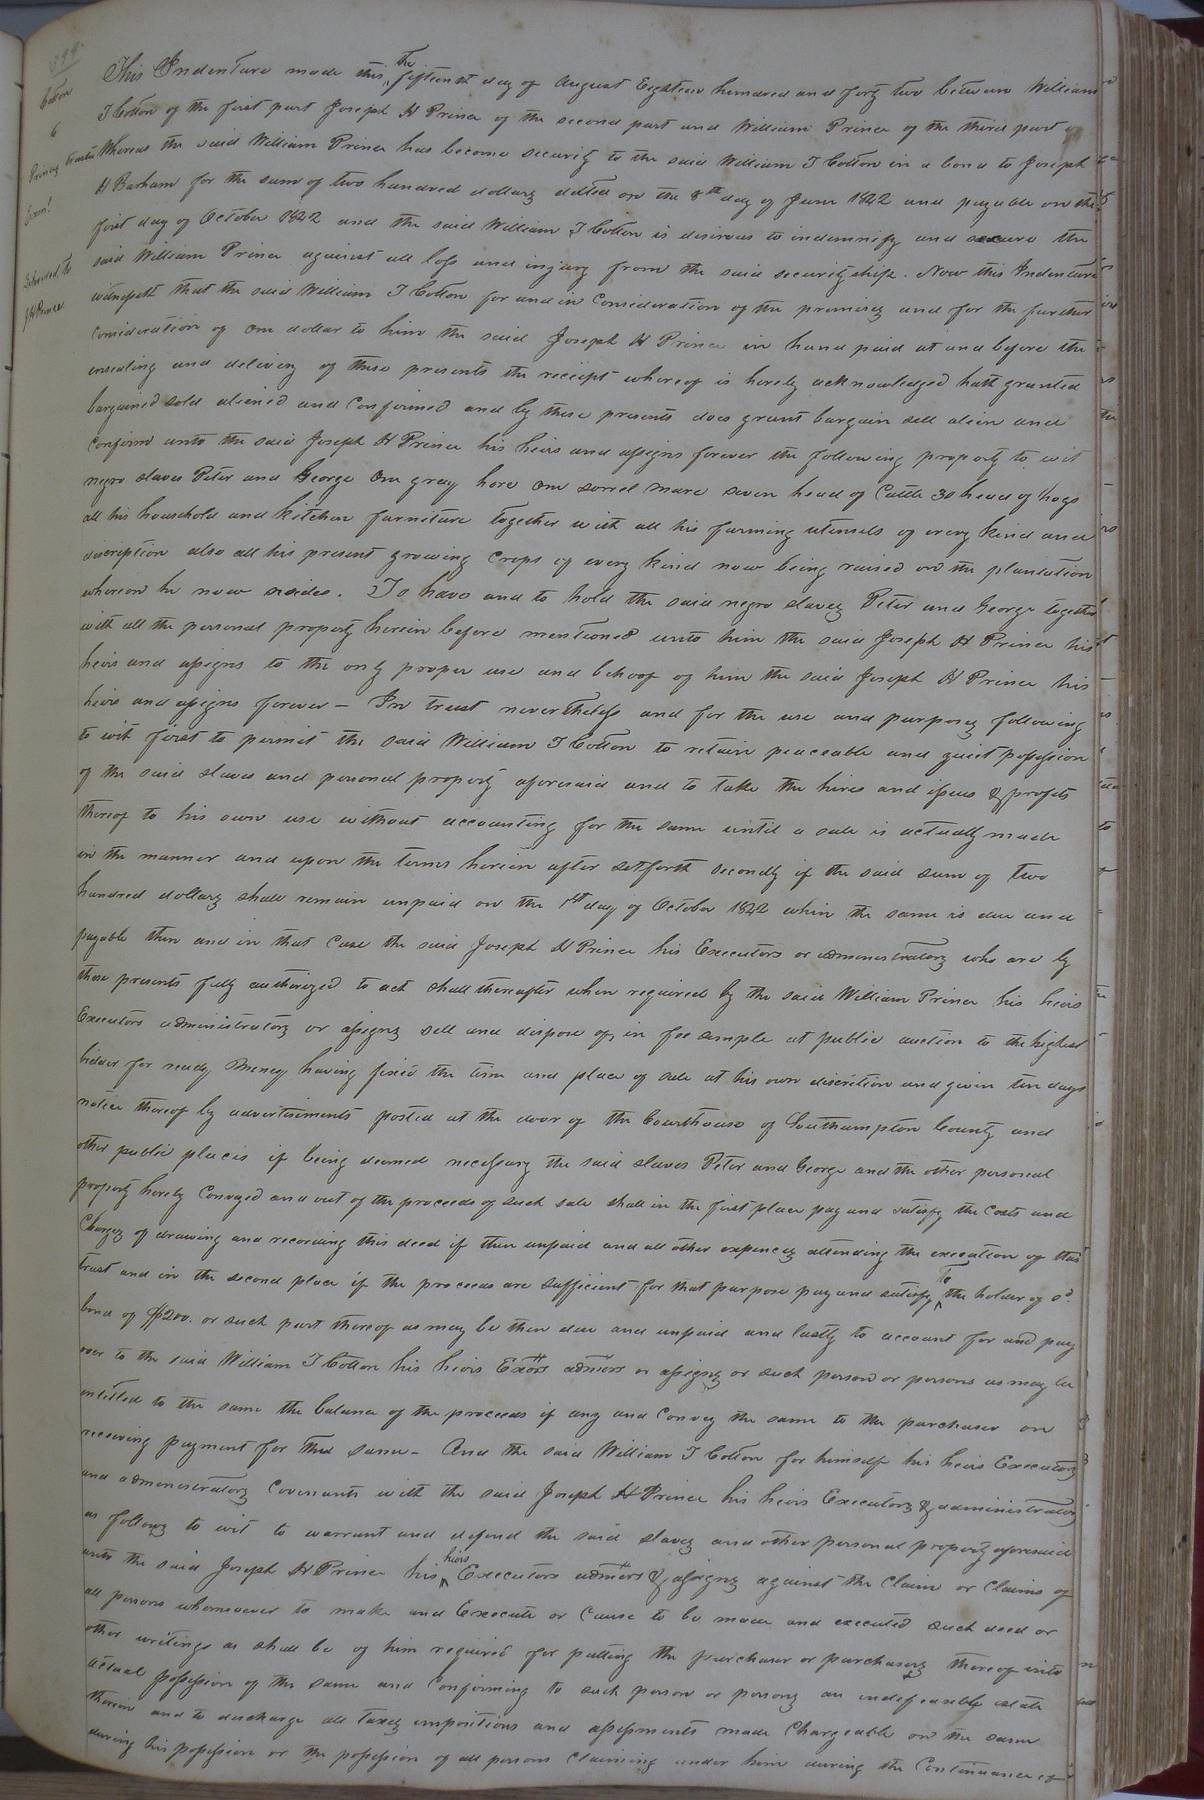 399
Cotton
6
Princes trustee
Exam!
Delivered to
J H Prince
This Indenture made this the fifteenth day of August Eighteen hundred and forty two between William
T Cotton of the first part Joseph H Prince of the second part and William Prince of the third part
Whereas the said William Prince has become security to the said William T Cotton in a bond to Joseph
H Barham for the sum of two hundred dollars dated on the 8th day of June 1842 and payable on the
first day of October 1842 and the said William T Cotton is desirous to indemnify and secure the
said William Prince against all loss and injury from the said securityship. Now this Indenture
witnesseth that the said William T Cotton for and in Consideration of the premises and for the further
Consideration of one dollar to him the said Joseph H Prince in hand paid at and before the
ensealing and delivery of these presents the receipt whereof is hereby acknowledged hath granted
bargained sold aliened and Confirmed and by these presents does grant bargain sell alien and
Confirm unto the said Joseph H Prince his heirs and assigns forever the following property to wit
negro slaves Peter and George One gray hors One sorrel mare seven head of Cattle 30 head of hogs
all his household and kitchen furniture together with all his farming utensils of every kind and
discription also all his present growing Crops of every kind now being raised on the plantation
whereon he now resides. To have and to hold the said negro slaves Peter and George together
with all the personal property herein before mentioned unto him the said Joseph H Prince his
heirs and assigns to the only proper use and behoof of him the said Joseph H Prince his
heirs and assigns forever — In trust nevertheless and for the use and purposes following
to wit first to permit the said William T Cotton to retain peaceable and quiet possession
of the said slaves and personal property aforesaid and to take the hires and issues & profits
thereof to his own use without accounting for the same until a sale is actually made
in the manner and upon the terms herein after setforth secondly if the said sum of two
hundred dollars shall remain unpaid on the 1st day of October 1842 when the same is due and
payable then and in that Case the said Joseph H Prince his Executors or administrators who are by
these presents fully authorized to act shall thereafter when required by the said William Prince his heirs
Executors administrators or assigns sell and dispose of, in fee simple at public auction to the highest
bidder for ready Money having fixed the time and place of sale at his own discretion and given ten days
notice thereof by advertisements posted at the door of the Courthouse of Southampton County and
other public places if being deemed necessary the said slaves Peter and George and the other personal
property hereby Conveyed and out of the proceeds of such sale shall in the first place pay and satisfy the Costs and
Charges of drawing and recording this deed if then unpaid and all other expences attending the execution of this
trust and in the second place if the proceeds are sufficient for that purpose pay and satisfy to the holder of sd
bond of $200. or such part thereof as may be then due and unpaid and lastly to account for and pay
over to the said William T Cotton his heirs Exors admors or assigns or such person or persons as may be
entitled to the same the balance of the proceeds if any and Convey the same to the purchaser on
receiving payment for the same — And the said William T Cotton for himself his heirs Executors
and administrators Covenants with the said Joseph H Prince his heirs Executors & administrators
as follows to wit to warrant and defend the said slaves and other personal property aforesaid
unto the said Joseph H Prince his heirs Executors admors & assigns against the Claim or Claims of
all persons whomsoever to make and Execute or Cause to be made and executed such deed or
other writings as shall be of him required for putting the purchaser or purchasers thereof into
actual possession of the same and Confirming to such person or persons an indefeasible estate
therein and to discharge all taxes impositions and assessments made Chargeable on the same
during his possession or the possession of all persons Claiming under him during the Continuance of